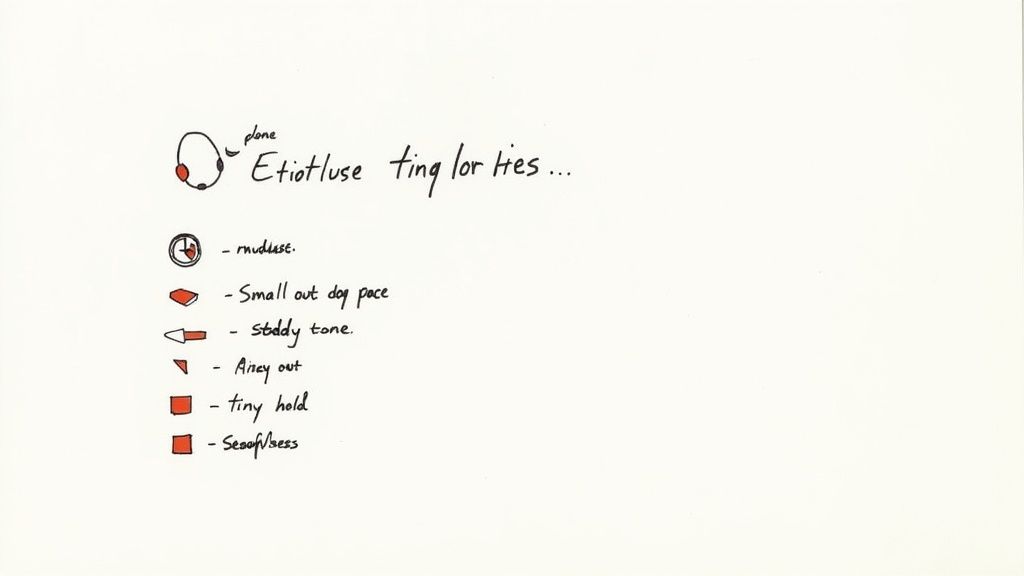 plone
Etiotluse ting lor Hies...
- mudust.
- Small out dog pace
- stddy tone.
- Airey out
- tiny hold
-